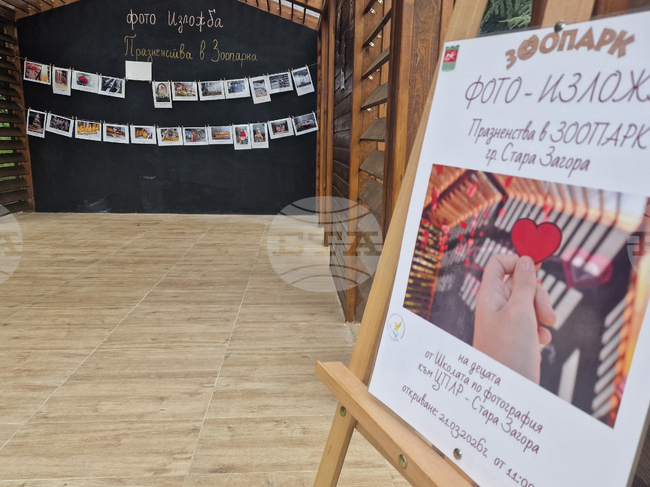 фото Изложба
Празненства в Зоопарка
ЗООПАРК
ФОТО - ИЗЛОЖ
Празненства в ЗООПАРК
гр. Стара Загора
на децата
от Школата по фотография
към ЦПЛР - Стара Загора
откриване: 21.03.2026г. от 11:00